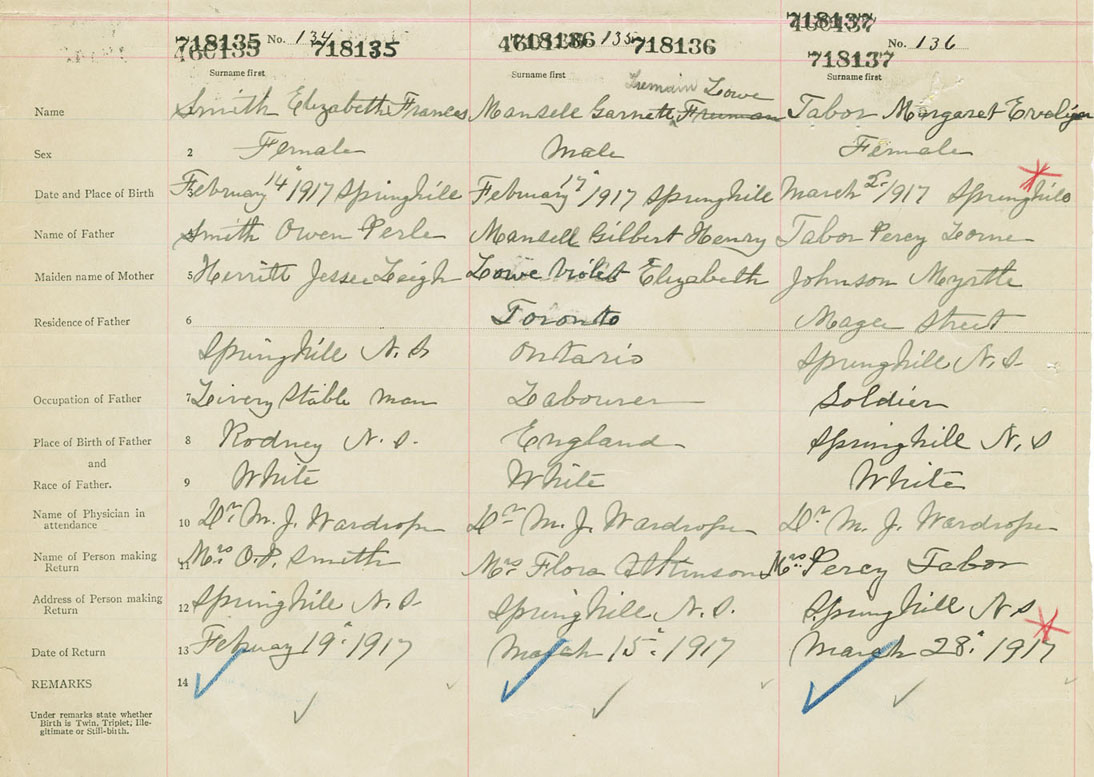 718137
460137
718135 No. 134 718135 718136 135 718136 No. 136
460135 460136 718137
Surname first Surname first Surname first
Tremain Lowe
Name Smith Elizabeth Frances Mansell Garnett Freeman Tabor Margaret Evelyn
Sex 2 Female Male Female
Date and Place of Birth 3 February 14" 1917 Springhill February 17" 1917 Springhill March 2" 1917 Springhill
Name of Father 4 Smith Owen Perle Mansell Gilbert Henry Tabor Percy Lorne
Maiden name of Mother 5 Herritt Jessee Leigh Lowe Violet Elizabeth Johnson Myrtle
Residence of Father 6 Toronto Street
Springhill N.S Ontario Springhill N.S.
Occupation of Father 7 Livery Stable man Labourer Soldier
Place of Birth of Father 8 Rodney N.S. England Springhill N.S
and
Race of Father. 9 White White White
Name of Physician in
attendance 10 Dr. M. J. Wardrope Dr. M. J. Wardrope Dr. M. J. Wardrope
Name of Person making
Return 11 Mrs O.P. Smith Mrs. Flora Atkinson Mrs. Percy Tabor
Address of Person making
Return 12 Springhill N.S Springhill N.S. Springhill N.S
Date of Return 13 Febuary 19" 1917 March 15" 1917 March 28" 1917
REMARKS 14
Under remarks state whether
Birth is Twin, Triplet; Ille-
gitimate or Still-birth.